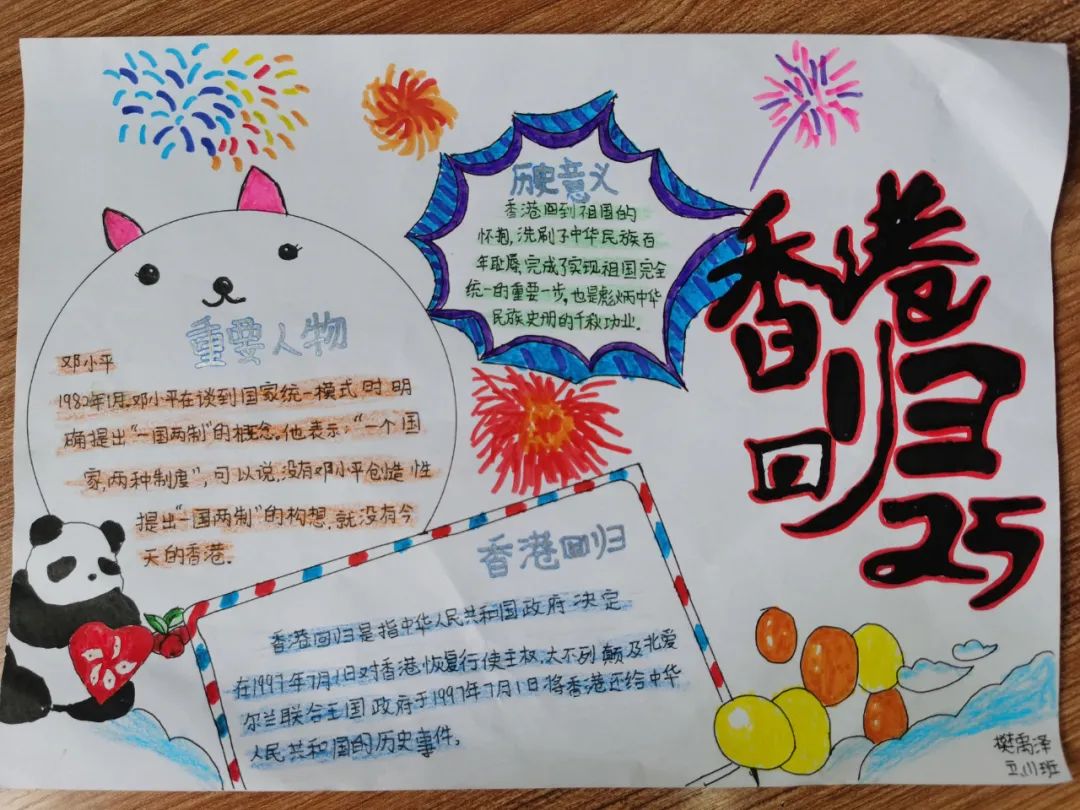 历史意义
香港回到祖国的
怀抱,洗刷了中华民族百
年耻辱,完成了实现祖国完全
统一的重要一步,也是彪炳中华
民族史册的千秋功业.
香港
回归
25
重要人物
邓小平
1982年1月,邓小平在谈到国家统一模式时明
确提出“一国两制”的概念。他表示:“一个国
家,两种制度”,可以说,没有邓小平创造性
提出“一国两制”的构想,就没有今
天的香港.
香港回归
香港回归是指中华人民共和国政府决定
在1997年7月1日对香港恢复行使主权,大不列颠及北爱
尔兰联合王国政府于1997年7月1日将香港还给中华
人民共和国的历史事件。
樊禹泽